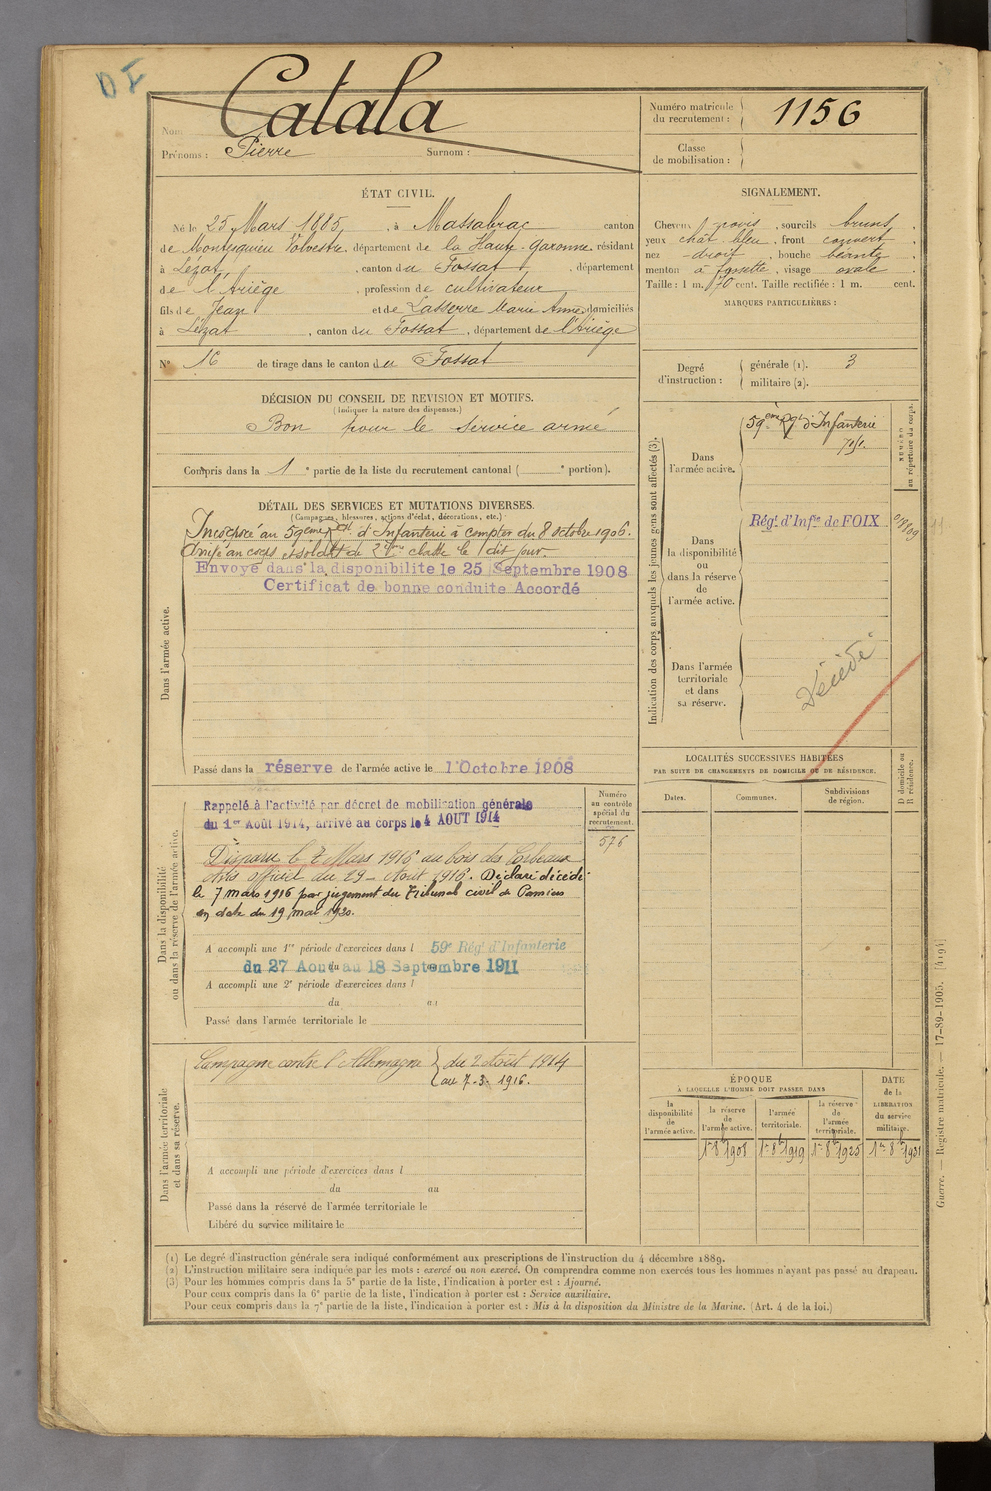 D I
Catala
Nom
Prénoms : Pierre Surnom :
Numéro matricule
du recrutement : 1156
Classe
de mobilisation :
ÉTAT CIVIL.
Né le 25 Mars 1885, à Massabrac canton
de Montesquieu Volvestre, département de la Haute-Garonne, résidant
à Lézat, canton du Fossat, département
de l'Ariège, profession de cultivateur
fils de Jean et de Lasserre Marie Anne, domiciliés
à Lézat, canton du Fossat, département de l'Ariège
N° 16 de tirage dans le canton du Fossat
SIGNALEMENT.
Cheveux noirs, sourcils bruns,
yeux chât. bleu, front couvert,
nez droit, bouche béante,
menton à fossette, visage ovale.
Taille : 1 m. 70 cent. Taille rectifiée : 1 m. cent.
MARQUES PARTICULIÈRES :
Degré
d'instruction :
générale (1). 3
militaire (2).
DÉCISION DU CONSEIL DE REVISION ET MOTIFS.
(Indiquer la nature des dispenses.)
Bon pour le service armé
Compris dans la 1e partie de la liste du recrutement cantonal ( e portion).
DÉTAIL DES SERVICES ET MUTATIONS DIVERSES.
(Campagnes, blessures, actions d'éclat, décorations, etc.)
Incorporé au 59ème Régt d'Infanterie à compter du 8 octobre 1906.
Arrivé au corps et soldat de 2ème classe le dit jour
Envoyé dans la disponibilite le 25 Septembre 1908
Certificat de bonne conduite Accordé
Dans l'armée active.
Passé dans la réserve de l'armée active le 1 Octobre 1908
Indication des corps auxquels les jeunes gens sont affectés (3).
NUMÉRO
au répertoire du corps.
Dans
l'armée active.
59ème Rgt d'Infanterie
Dans
la disponibilité
ou
dans la réserve
de
l'armée active.
Régt. d'Infie de FOIX
Dans l'armée
territoriale
et dans
sa réserve.
Décédé
LOCALITÉS SUCCESSIVES HABITÉES
PAR SUITE DE CHANGEMENTS DE DOMICILE OU DE RÉSIDENCE.
Dates.
Communes.
Subdivisions
de région.
D domicile ou
R résidence.
Numéro
au contrôle
spécial du
recrutement.
576
Dans la disponibilité
ou dans la réserve de l'armée active.
Rappelé à l'activité par décret de mobilisation générale
du 1er Août 1914, arrivé au corps le 4 AOUT 1914
Disparu le 7 Mars 1916 au bois des Corbeaux
Avis officiel du 29 Août 1916. Déclaré décédé
le 7 mars 1916 par jugement du Tribunal civil de Pamiers
en date du 19 mai 1920.
A accompli une 1re période d'exercices dans l 59e Régt d'Infanterie
du 27 Aout au 18 Septembre 1911
A accompli une 2e période d'exercices dans l
du au
Passé dans l'armée territoriale le
Dans l'armée territoriale
et dans sa réserve.
Campagne contre l'Allemagne du 2 Août 1914
au 7-3-1916.
A accompli une période d'exercices dans l
du au
Passé dans la réserve de l'armée territoriale le
Libéré du service militaire le
ÉPOQUE
À LAQUELLE L'HOMME DOIT PASSER DANS
DATE
de la
LIBÉRATION
du service
militaire.
la
disponibilité
de
l'armée active.
la réserve
de
l'armée active.
l'armée
territoriale.
la réserve
de
l'armée
territoriale.
1er 8bre 1908 1er 8bre 1919 1er 8bre 1925 1er 8bre 1931
(1) Le degré d'instruction générale sera indiqué conformément aux prescriptions de l'instruction du 4 décembre 1889.
(2) L'instruction militaire sera indiquée par les mots : exercé ou non exercé. On comprendra comme non exercés tous les hommes n'ayant pas passé au drapeau.
(3) Pour les hommes compris dans la 5e partie de la liste, l'indication à porter est : Ajourné.
Pour ceux compris dans la 6e partie de la liste, l'indication à porter est : Service auxiliaire.
Pour ceux compris dans la 7e partie de la liste, l'indication à porter est : Mis à la disposition du Ministre de la Marine. (Art. 4 de la loi.)
Guerre. — Registre matricule. — 17-89-1905. [4194]